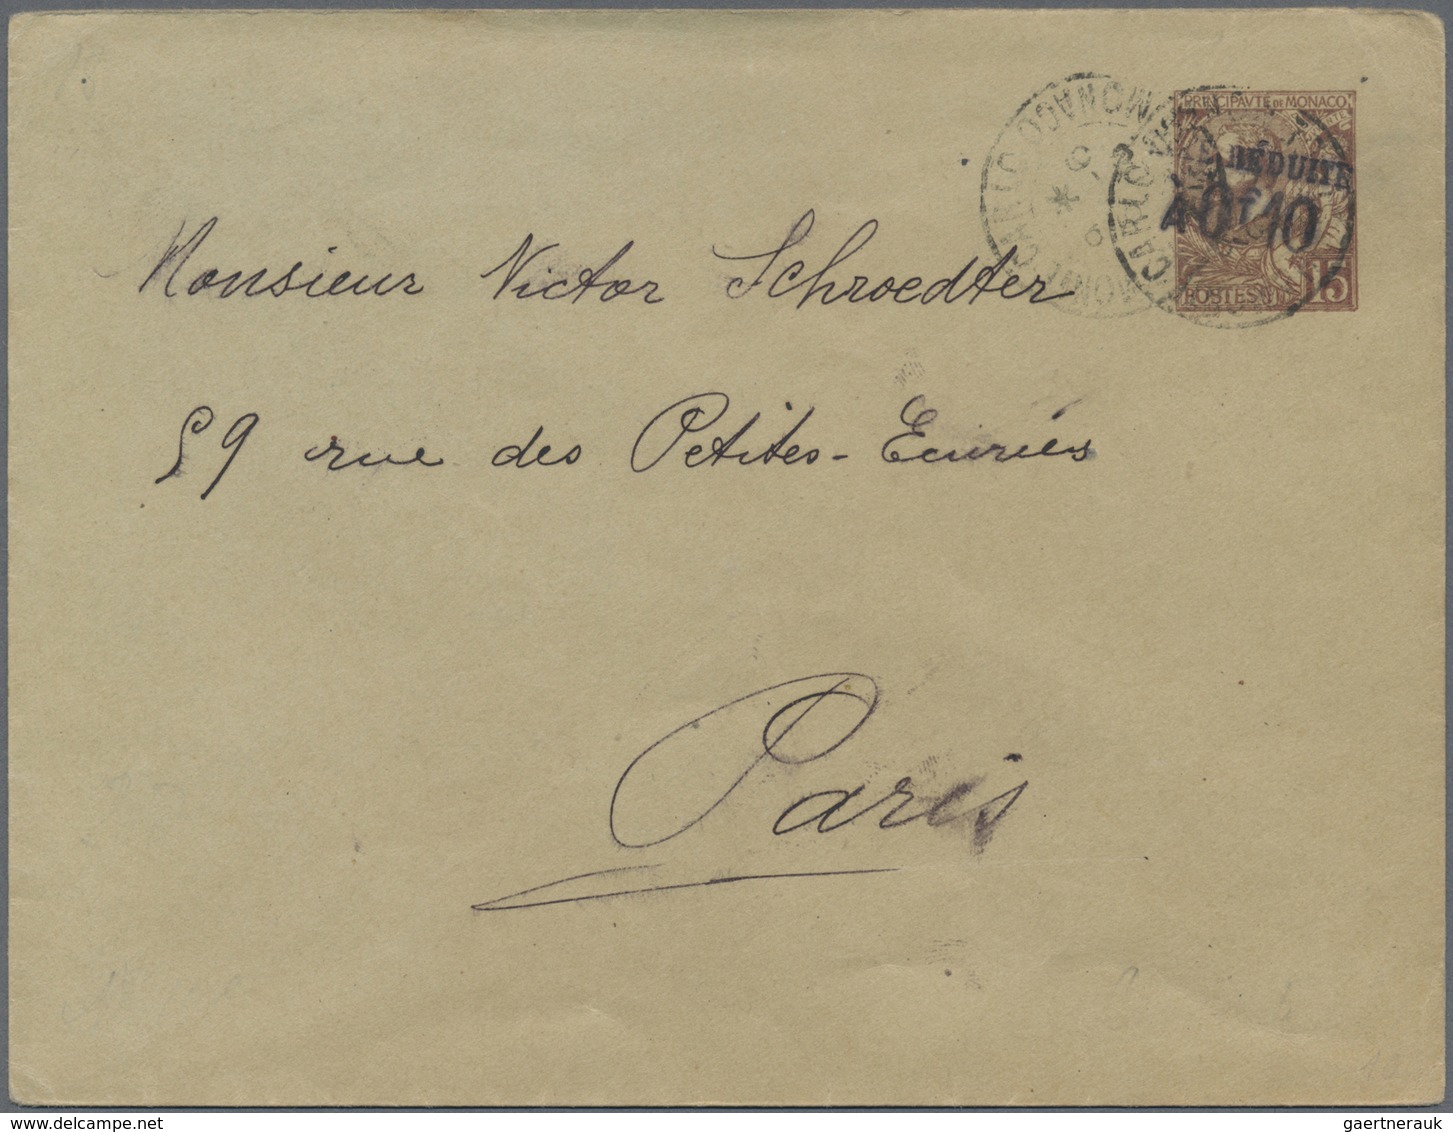 PRINCIPAVTE DE MONACO
RÉDUITE
À 0f10
POSTES 15
MONTE CARLO MONACO
Monsieur Victor Schroedter
59 rue des Petites-Ecuriés
Paris
gaertnerauk @ delcampe.net